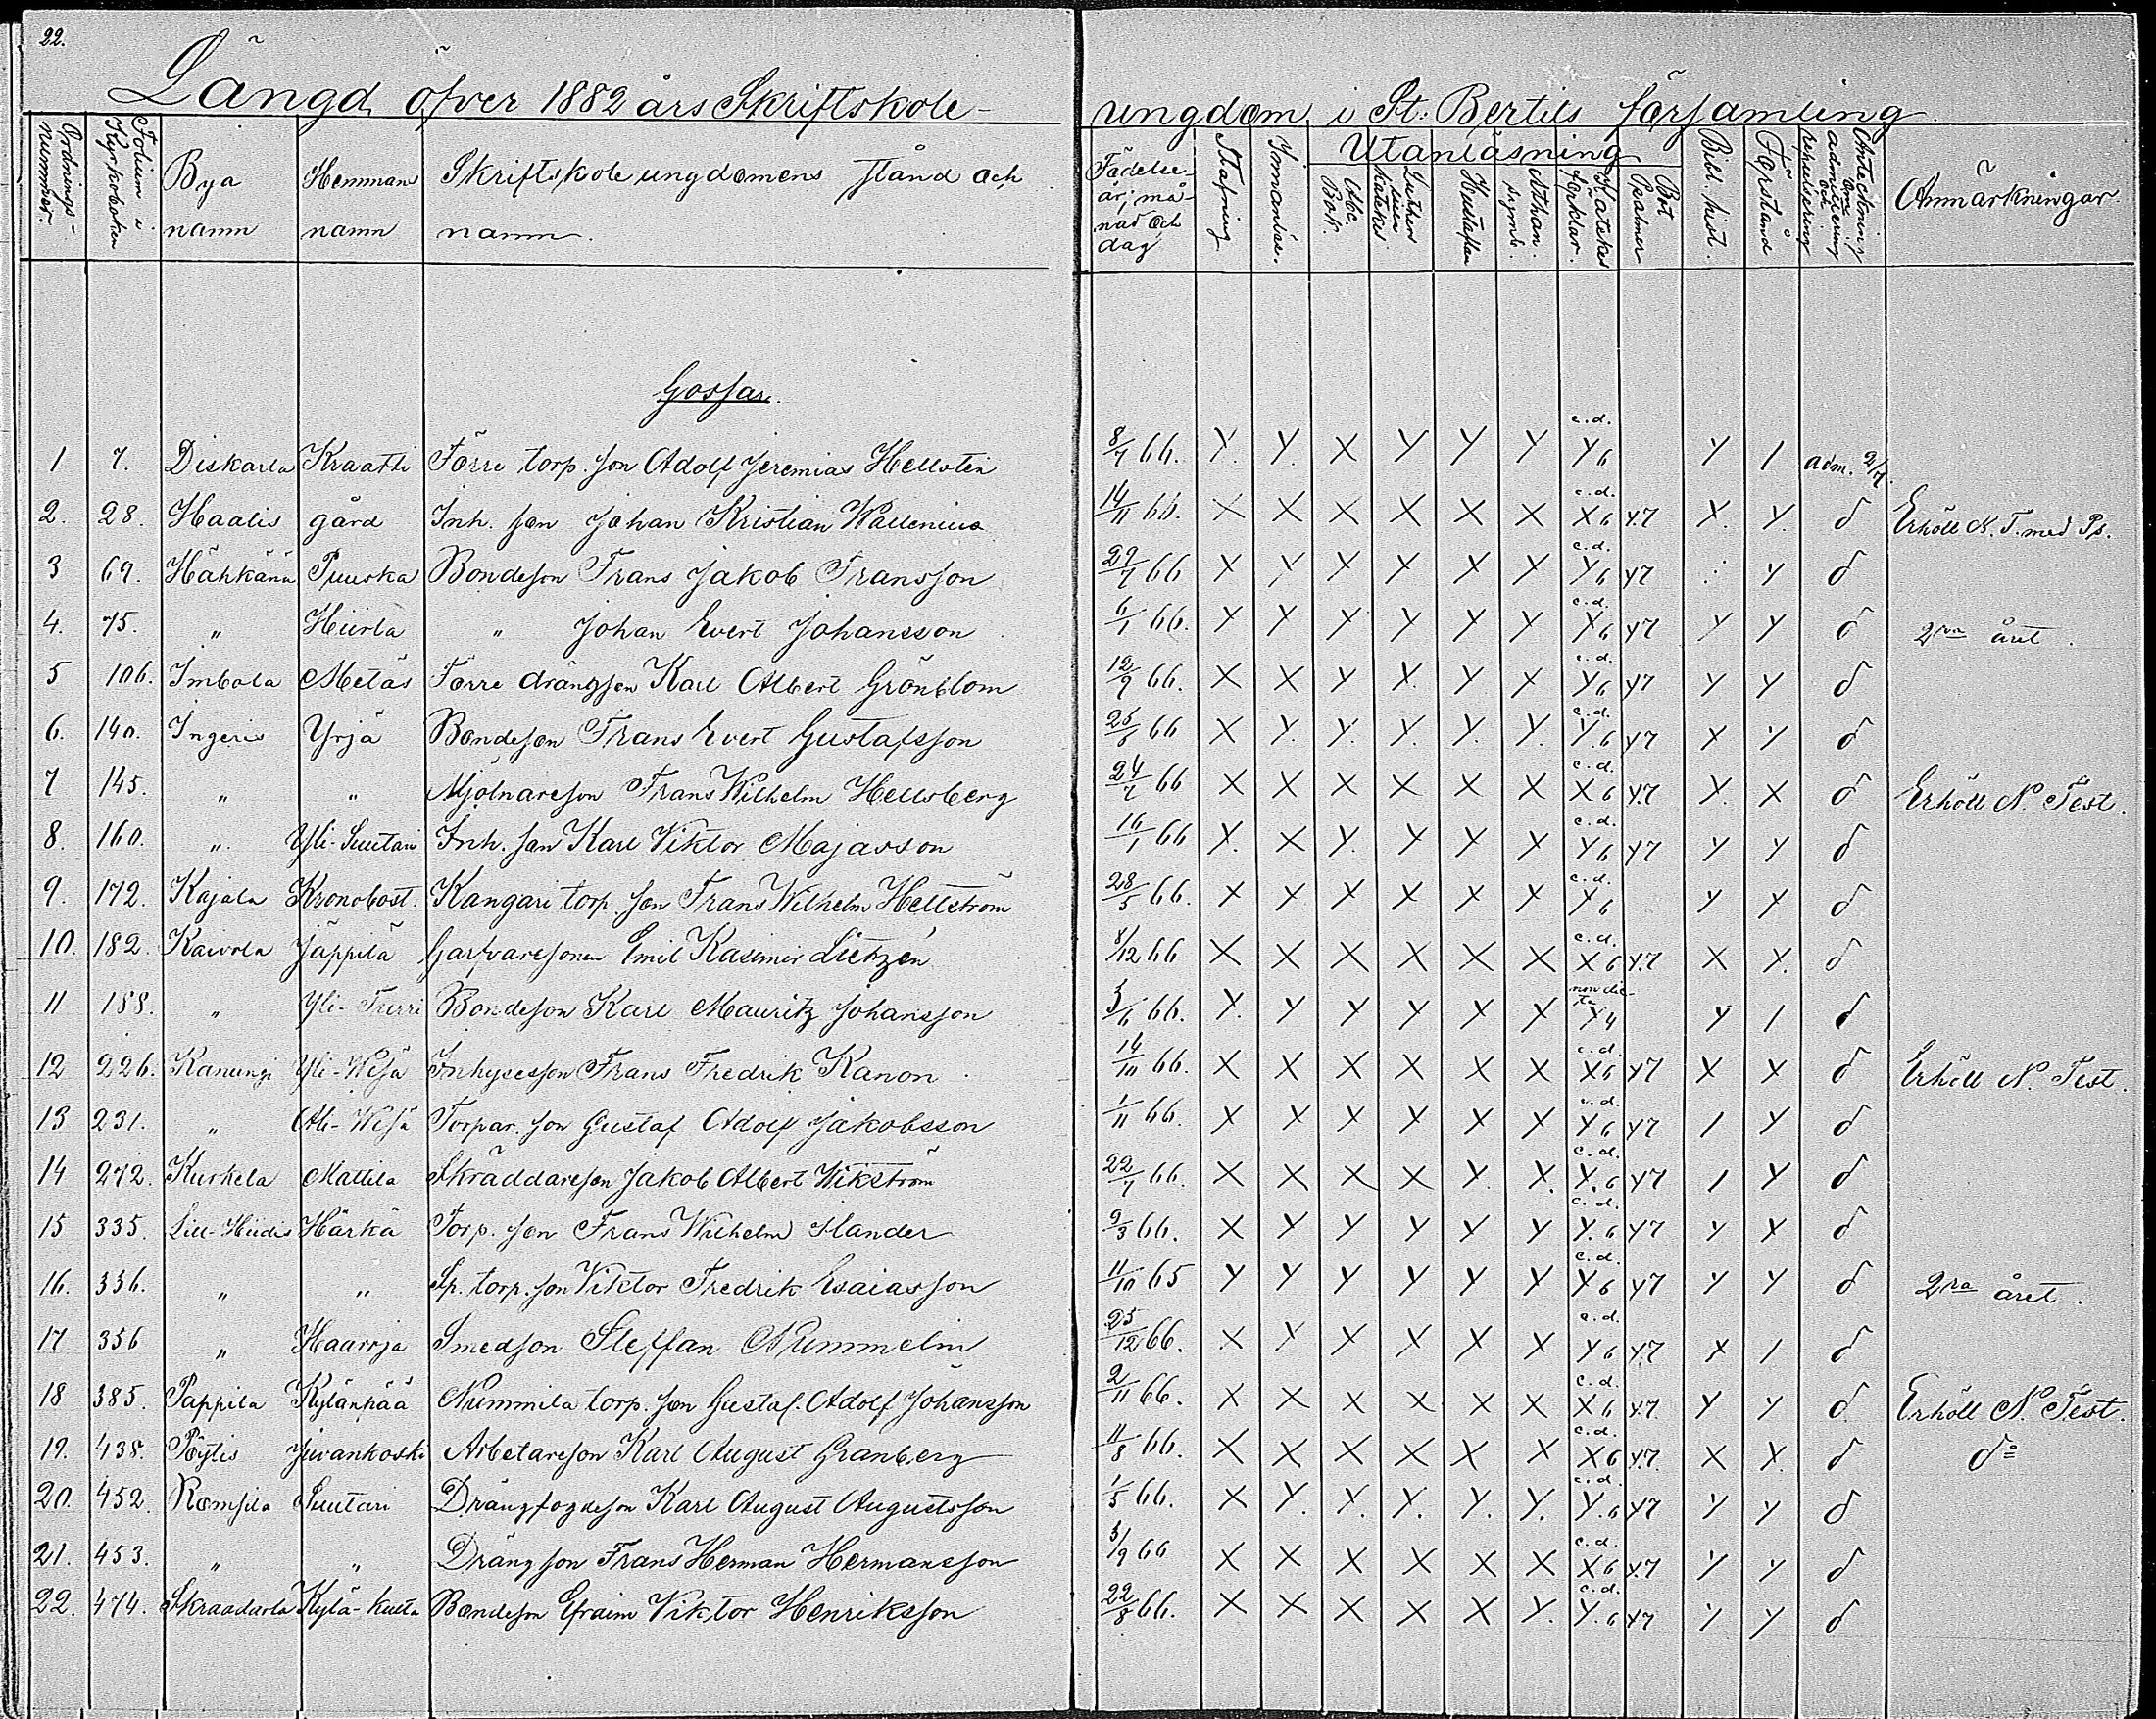 22.
Längd öfver 1882 års Skriftskole-ungdom i St. Bertils församling.
Ordnings-nummer. Folium i Kyrkoboken Bya namn Hemmans namn Skriftskoleungdomens stånd och namn. Födelseår, månad och dag Stafning Innanläs. Utanläsning Abc Bok. Luthers lilla katekes Hustaflan Athan. symb. Katekes förklar. Bot Psalmer Bibl. hist. Förstånd Anteckning om admittering och rehuisering Anmärkningar.
Gossar.
1 7. Diskarla Kraatti Förre torp. son Adolf Jeremias Hellstén 8/7 66. Y. Y. X Y Y Y c.d. Y6 Y 1 adm. 2/7.
2. 28. Haalis gård Inh. son Johan Kristian Wallenius 14/11 X X X X X X c.d. X6 Y.7 X. Y. d Erhöll N. T. med Ps.
3 69. Hähkänä Puuska Bondeson Frans Jakob Fransson 27/7 66 X Y X X X X c.d. Y6 Y7 Y d
4. 75. " Hiirla " Johan Evert Johansson 6/1 66. X X Y Y Y Y c.d. X6 Y7 Y Y d 2ra året.
5 106. Imbola Metäs Förre drängson Karl Albert Grönblom 12/9 66. X X Y X. Y X c.d. Y6 Y7 Y Y d
6. 140. Ingeris Yrjä Bondeson Frans Evert Gustafsson 66 X Y. Y. Y. Y. Y. c.d. Y.6 Y7 X Y d
7 145. " " Mjölnareson Frans Wilhelm Hellsberg 24/7 66 X X X X X X c.d. X6 Y.7 X. X d Erhöll N. Test.
8. 160. " Yli-Suutari Inh. son Karl Viktor Majasson 16/1 66 X. X Y. X X X c.d. Y6 Y7 Y Y d
9. 172. Kajala Kronobost. Kangari torp. son Frans Wilhelm Hellström 28/5 66. X X X X X X c.d. Y6 Y X d
10. 182. Kaivola Jäppilä Garfvaresonen Emil Kasimir Lietzén 8/12 66 X X X X X X c.d. X6 Y.7 X X. d
11 188. " Yli-Turri Bondeson Karl Mauritz Johansson 3/6 66. Y. Y Y Y X X non dicta Y4 Y 1 d
12 226. Kanungi Yli-Wesä Inhyseson Frans Fredrik Kanon. 14/10 66. X X X X X X c.d. X6 Y7 X X d Erhöll N. Test.
13 231. " Ali-Wesä Torpar. son Gustaf Adolf Jakobsson 1/11 66. X X X X X X c.d. Y6 Y7 1 Y d
14 272. Kurkela Mattila Skräddareson Jakob Albert Wikström 22/7 66. X X X X X. X. c.d. Y.6 Y7 1 Y d
15 335. Lill-Hiidis Härkä Torp. son Frans Wilhelm 9/3 66. X Y Y Y Y Y. c.d. Y.6 Y7 Y X d
16. 336. " " Sp. torp. son Viktor Fredrik Esaiasson 11/10 65 Y Y Y Y Y Y c.d. Y6 Y7 Y Y d 2ra året.
17 356 " Haarvja Smedson Steffan Nummelin 25/12 66. X Y X X X X c.d. Y6 Y.7 X 1 d
18 385. Pappila Kylänpää Nummila torp. son Gustaf. Adolf Johansson 2/11 66. X X X X X X c.d. X6 Y.7. Y Y d Erhöll N. Test.
19. 438. Pöytis Juvankoski Arbetareson Karl August Granberg 11/8 66. X X X X X X c.d. X6 Y.7. X X. d do
20. 452. Romsila Suutari Drängfogdeson Karl August Augustsson 1/5 66. X Y. X. X. Y. Y. c.d. Y.6 Y7 Y Y d
21. 453. " " Drängson Frans Herman Hermansson 3/9 66 X X X X X X c.d. X6 Y.7 Y Y d
22. 474. Skraadarla Kylä-kusta Bondeson Efraim Viktor Henriksson 22/8 66. X X X X X Y. c.d. Y.6 Y7 Y Y d